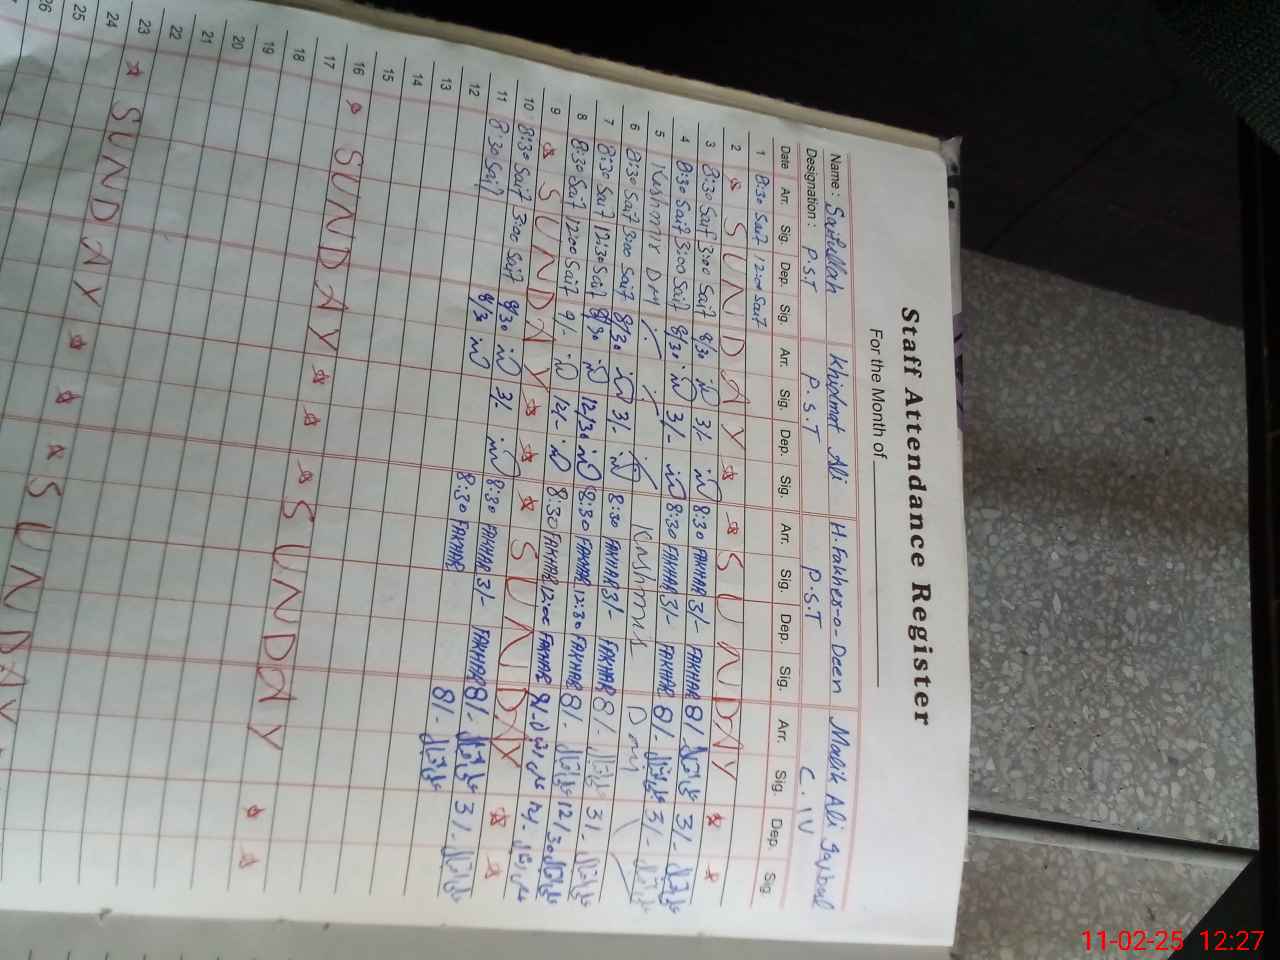 Staff Attendance Register
For the Month of
Name: Saifullah Khidmat Ali H. Fakher-o-Deen Malik Ali
Designation: P.S.T P.S.T P.S.T C.IV
Date Arr. Sig. Dep. Sig. Arr. Sig. Dep. Sig. Arr. Sig. Dep. Sig. Arr. Sig. Dep. Sig.
1 8:30 Saif 12:00 Saif
2 SUNDAY SUNDAY
3 8:30 Saif 3:00 Saif 8/30 3/- 8:30 FAKHAR 3/- FAKHAR 8/- 3/-
4 8:30 Saif 3:00 Saif 8/30 3/- 8:30 FAKHAR 3/- FAKHAR 8/- 3/-
5 Kashmir Day Kashmir Day
6 8:30 Saif 3:00 Saif 8/30 3/- 8:30 FAKHAR 3/- FAKHAR 8/- 3/-
7 8:30 Saif 12:30 Saif 8/30 12/30 8:30 FAKHAR 12:30 FAKHAR 8/- 12/30
8 8:30 Saif 12:00 Saif 9/- 12/- 8:30 FAKHAR 12:00 FAKHAR 9/- 12/-
9 SUNDAY SUNDAY
10 8:30 Saif 3:00 Saif 8/30 3/- 8:30 FAKHAR 3/- FAKHAR 8/- 3/-
11 8:30 Saif 8/30 8:30 FAKHAR 8/-
12
13
14
15
16 SUNDAY SUNDAY
17
18
19
20
21
22
23 SUNDAY SUNDAY
24
25
26
11-02-25 12:27